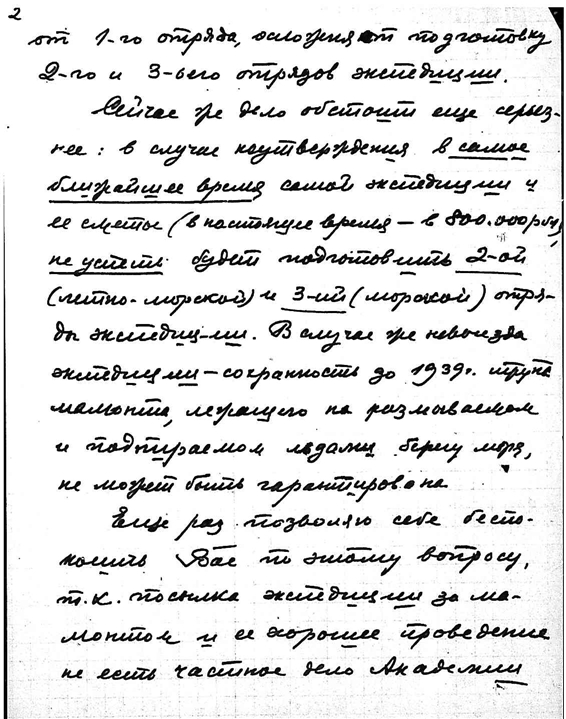 2
от 1-го отряда, осложняют подготовку
2-го и 3-ьего отрядов экспедиции.
Сейчас же дело обстоит еще серьез-
нее: в случае неутверждения в самое
ближайшее время самой экспедиции и
ее сметы (в настоящее время — в 800.000 руб.),
не успеть будет подготовить 2-ой
(летно-морской) и 3-ий (морской) отря-
ды экспедиции. В случае же невыезда
экспедиции — сохранность до 1939г. трупа
мамонта, лежащего на размываемом
и подпираемом льдами берегу моря,
не может быть гарантирована
Еще раз позволяю себе беспо-
коить Вас по этому вопросу,
т.к. посылка экспедиции за ма-
монтом и ее хорошее проведение
не есть частное дело Академии